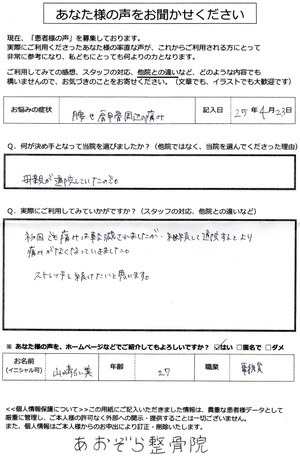 あなた様の声をお聞かせください
現在、「患者様の声」を募集しております。
実際にご利用くださったあなた様の率直な声が、これからご利用される方にとって
非常に参考になり、私どもにとっても何よりの力となります。
ご利用してみての感想、スタッフの対応、他院との違いなど、どのような内容でも
構いませんので、お気づきのことをお寄せください。（文章でも、イラストでも大歓迎です）
お悩みの症状 腰、肩甲骨周辺の痛み 記入日 25年4月23日
Q．何が決め手となって当院を選びましたか？（他院ではなく、当院を選んでくださった理由）
母親が通院していたため
Q．実際にご利用してみていかがですか？（スタッフの対応、他院との違いなど）
初回でも痛みは軽減されましたが、継続して通院するとより
痛みがなくなっていきました。
ストレッチも続けたいと思います。
※ あなた様の声を、ホームページなどでご紹介してもよろしいですか？ ☑はい □匿名で □ダメ
お名前 年齢 27 職業
（イニシャル可）
<<個人情報保護について>>この用紙にご記入いただきました情報は、貴重な患者様データとして
厳重に管理し、ご本人様の許可なく外部への開示・提供することは一切ございません。
また、個人情報はご本人様からのお申出により訂正・削除いたします。
あおぞら整骨院